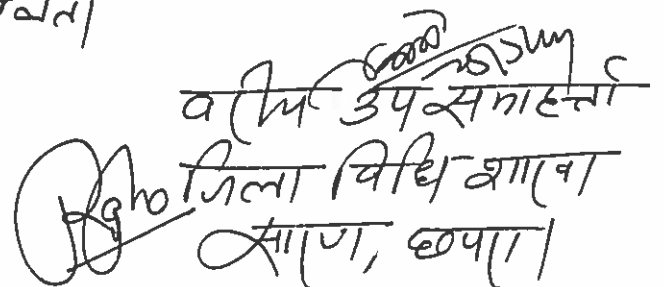 वरीय उप समाहर्त्ता
जिला विधि शाखा
सारण, छपरा।